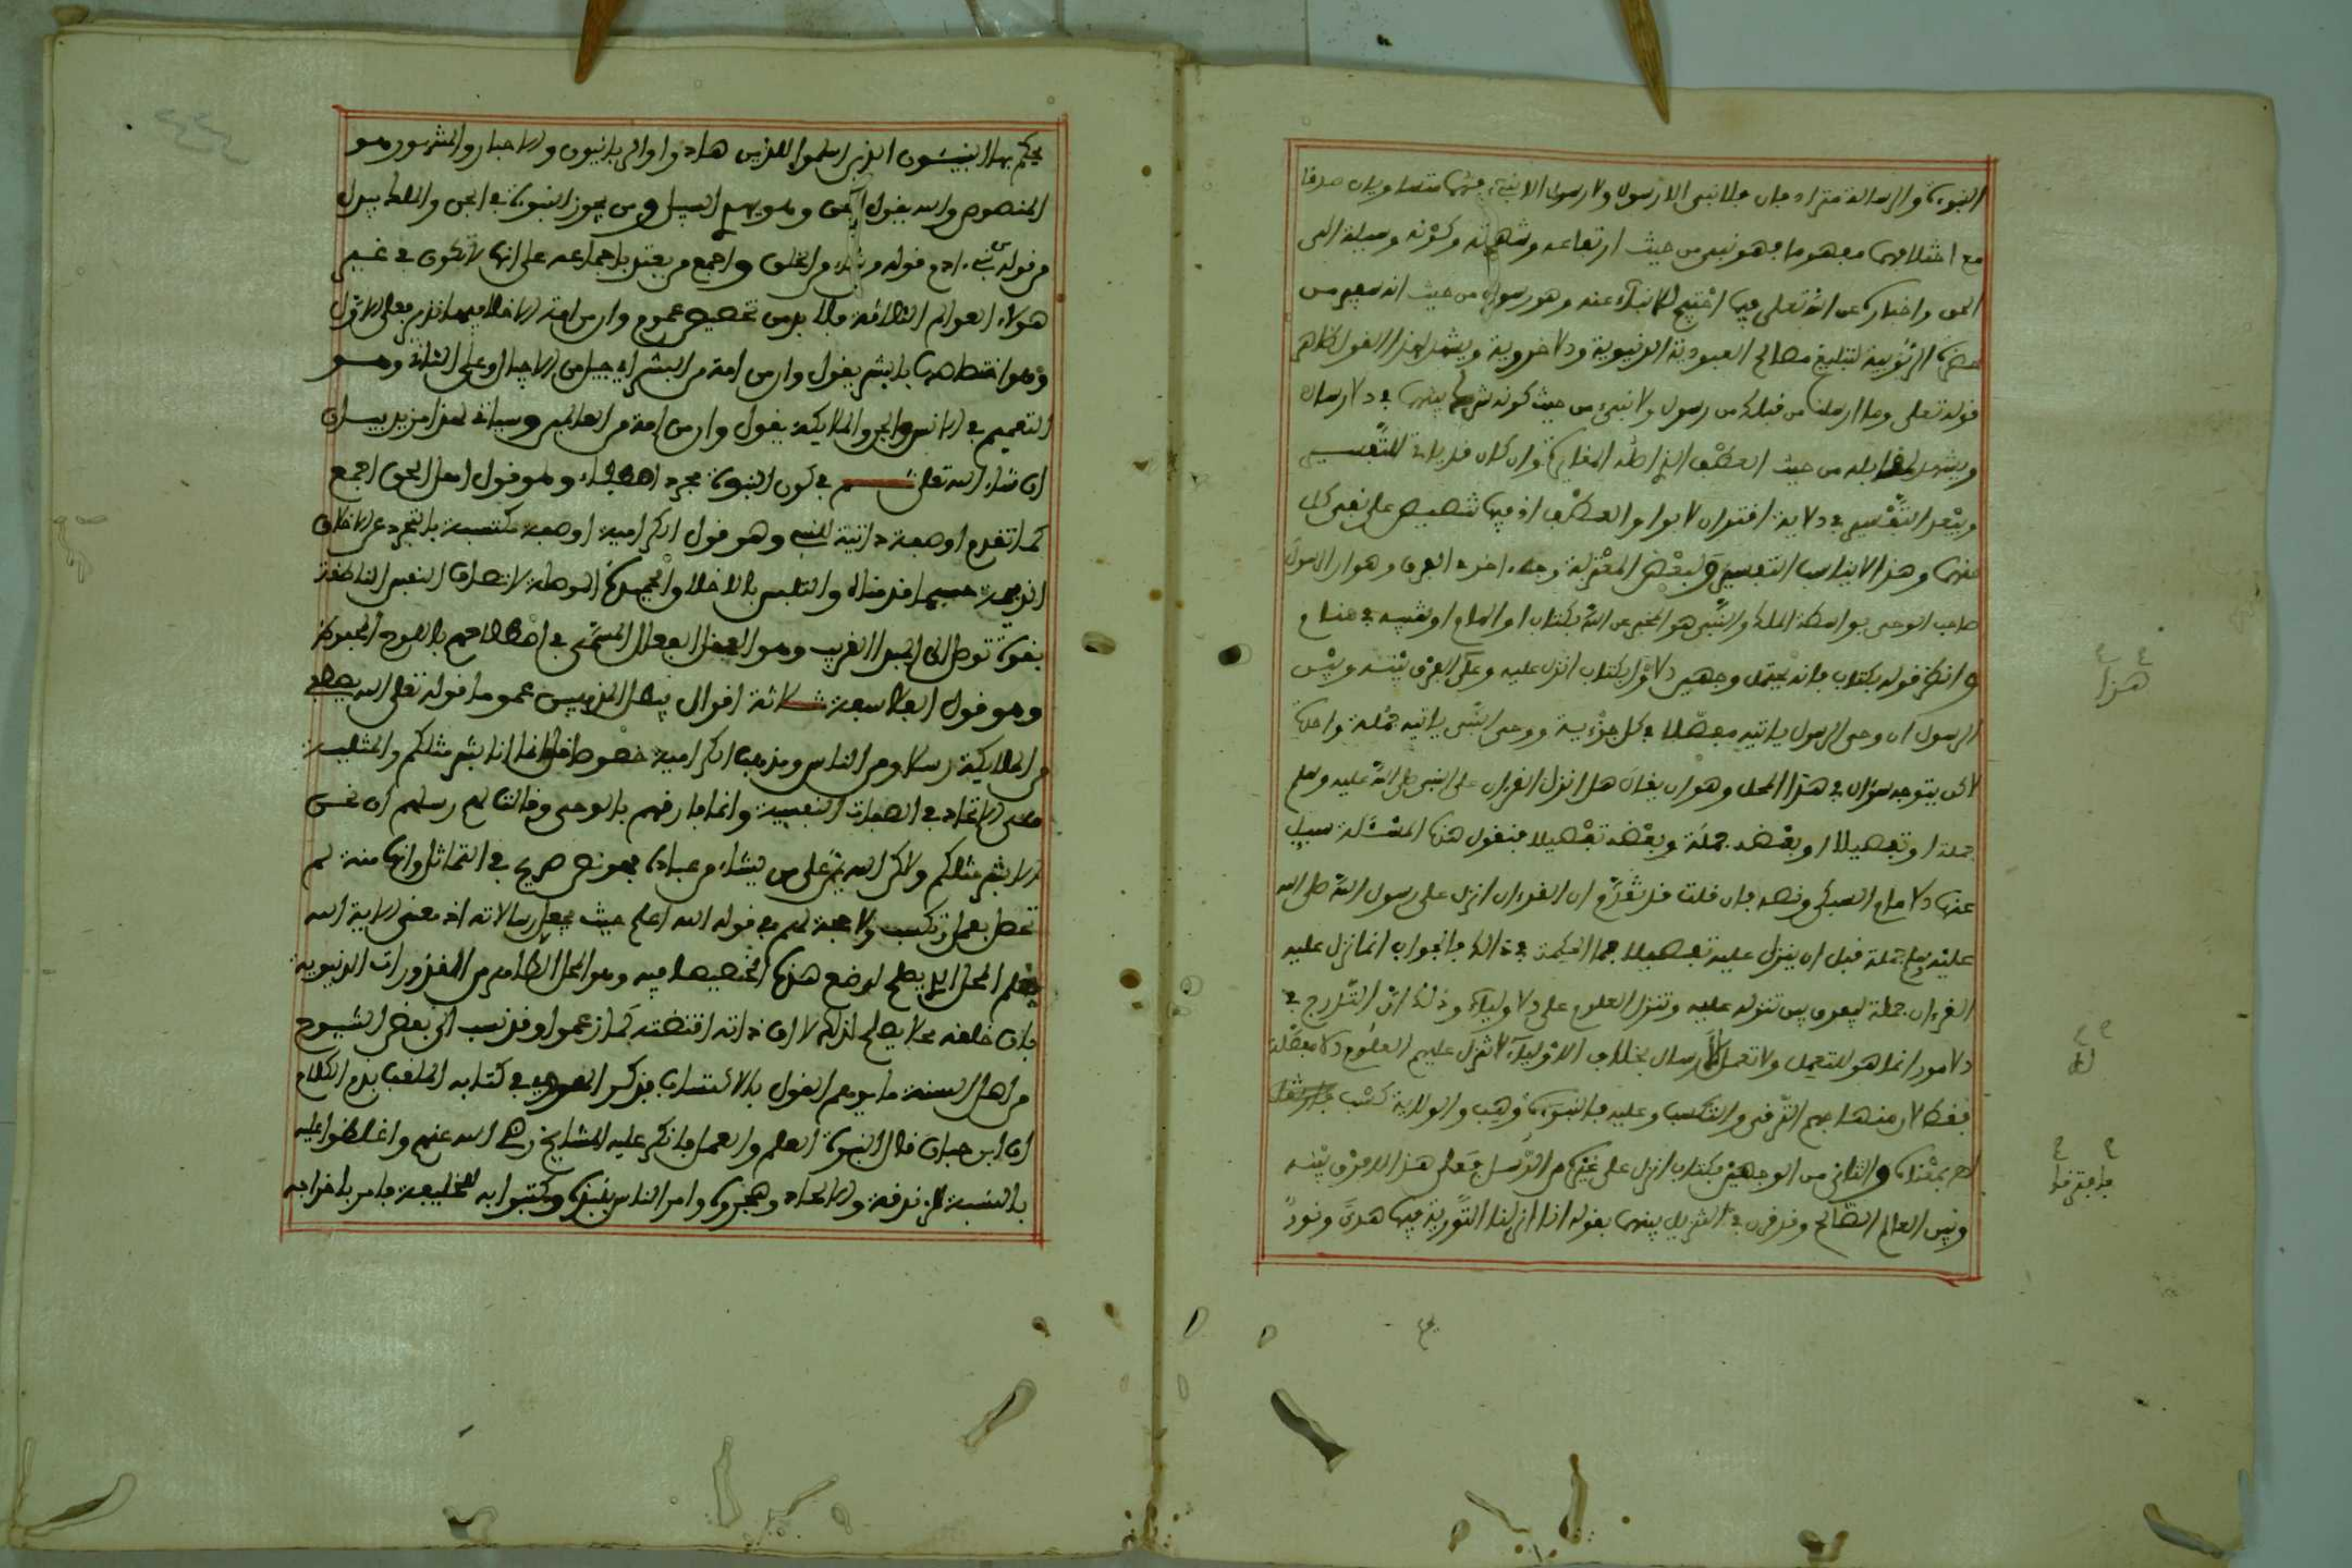 النبوة والرسالة مترادفان فلا نبي الا رسول ولا رسول الا نبي فهما متساويان صدقا
مع اختلافهما مفهوما فهو نبي من حيث ارتفاعه وشهرته وكونه وسيلة الى
الحق واخباره عن الله تعلى فيما احتيج للانباء عنه وهو رسول من حيث انه سفير من
حضرة الربوبية لتبليغ مصالح العبودية الدنيوية والاخروية ويشهد لهذا القول ظاهر
قوله تعلى وما ارسلنا من قبلك من رسول ولا نبيء من حيث كونه شرط بينهما في الارسال
ويشهد لمقابله من حيث العطف الذي اصله المغايرة وان كان قد ياتي للتفسير
ويبعد التفسير في الاية اقتران لا بواو العطف اذ فيها تنصيص على نفي كل
منهما وهذا لا يناسب التفسير ولبعض المعتزلة وجه اخر في الفرق وهو ان الرسول
صاحب الوحي بواسطة الملك والنبي هو المخبر عن الله بكتاب او الهام او تنبيه في منام
وانظر قوله بكتاب فانه يحتمل وجهين الاول بكتاب انزل عليه وعلى الفرق بينه وبين
الرسول ان وحي الرسول ياتيه مفصلا في كل جزئية ووحي النبي ياتيه جملة واحدة
لاكن يتوجه سؤال في هذا المحل وهو ان يقال هل انزل القرءان على النبي صلى الله عليه وسلم
جملة او تفصيلا او بعضه جملة وبعضه تفصيلا فنقول هذه المسئلة سيل
عنها الامام السبكي ونصه فان قلت قد تقرر ان القرءان انزل على رسول الله صلى الله
عليه وسلم جملة قبل ان ينزل عليه تفصيلا فما الحكمة في ذالك فالجواب انما نزل عليه
القرءان جملة ليفرق بين تنزله عليه وتنزل العلوم على الاولياء وذلك ان التدرج في
الامور انما هو للتعمل ولا تعمل للارسال بخلاف الاولياء لا تنزل عليهم العلوم الا مفصلة
فقط لان منهاجهم الترقي والتكسب وعليه فالنبوة وهب والولاية كسب
اهـ بمعناه والثاني من الوجهين بكتاب انزل على غيره من الرسل فعلى هذا لا فرق بينه
وبين العالم الصالح وقد فرق في التنزيل بينهما بقوله انا انزلنا التورية فيها هدى ونور
هذا
فافترقا
يحكم بها النبيئون الذين اسلموا للذين هادوا والربانيون والاحبار والمشهور هو
المنصوص والله يقول الحق وهو يهدي السبيل ومن يجوز النبوة في الجن والملك يبدل
من قوله نبيء ادم قوله من الخلق واجمع من يعتد باجماعه على انها لا تكون في غير
هولاء العوالم الثلاثة فلا بد من تخصيص عموم وان من امة الا خلا فيها نذير فعلى الاول
وهو اختصاصها بالبشر يقول وان من امة من البشر اي جيل من الاجيال وعلى الثاني وهو
التعميم في الانس والجن والملايكة يقول وان من امة من العالمين وسياتي لهذا مزيد بيان
ان شاء الله تعلى في كون النبوة مجرد اصطفاء وهو قول اهل الحق اجمع
كما تقدم او صفة ذاتية للنبي وهو قول الكرامية او صفة مكتسبة بالتجرد عن الاخلاق
الذميمة حسبما قدمناه والتلبس بالاخلاق الحميدة الموصلة لاتصاف النفس الناطقة
بقوة توصل الى المبدا القريب وهو العقل الفعال المسمى في اصطلاحهم بالروح
وهو قول الفلاسفة ثلاثة اقوال يبطل المذهبين عموما قوله تعلى الله يصطفي
من الملايكة رسلا ومن الناس ومذهب الكرامية خصوصا قل انما انا بشر مثلكم والمثلية
هي الاتحاد في الصفات النفسية وانما فارقهم بالوحي وقالت لهم رسلهم ان نحن
الا بشر مثلكم ولاكن الله يمن على من يشاء من عباده فهو نص صريح في التماثل وانها منة لم
تحصل بعمل وتكسب ولا حجة لهم في قوله الله اعلم حيث يجعل رسالاته اذ معنى الاية الله
يعلم المحل الذي يصلح لوضع هذه الخصيصة فيه وهو المحل الطاهر من القذورات الدنيوية
فان خلقه محلا يصلح لذلك لا ان ذاته اقتضته كما زعموا وقد نسب الى بعض الشيوخ
من اهل السنة ما يوهم القول بالاكتساب فذكر الهروي في كتابه الملقب بذم الكلام
ان ابن حبان قال النبوة العلم والعمل فانكر عليه المشايخ رضي الله عنهم واغلظوا عليه
بالنسبة للزندقة والالحاد وهجروه وامر الناس بنبذه وكتبوا به للخليفة فامر باخراجه